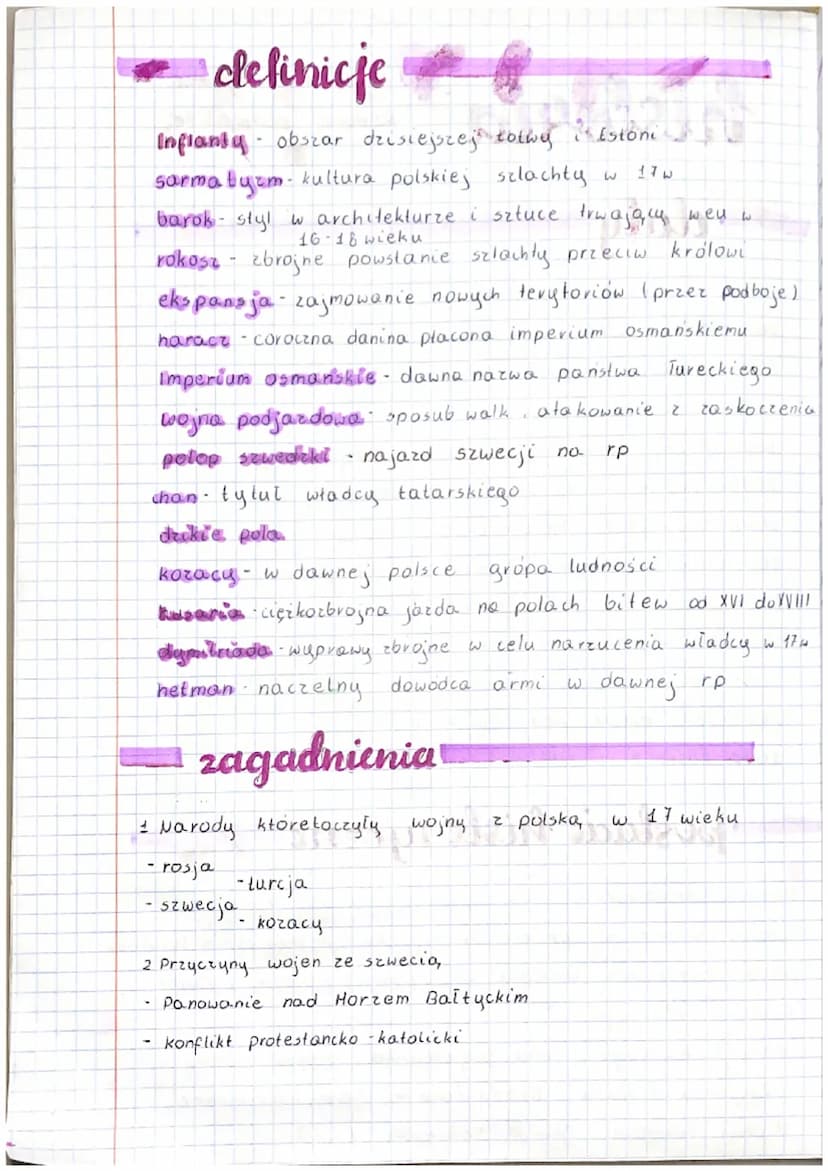 definicje
Inflanty - obszar dzisiejszej łotwy i Estoni
sarmatyzm - kultura polskiej szlachty w 17w
barok - styl w architekturze i sztuce trwający w
16-18 wieku
rokosz - zbrojne powstanie szlachty przeciw królowi
ekspansja - zajmowanie nowych terytoriów (przez podboje)
haracz - coroczna danina płacona imperium osmańskiemu
Imperium osmańskie - dawna nazwa państwa Tureckiego
wojna podjazdowa - sposub walk, atakowanie z zaskoczenia
potop szwedzki - najazd szwecji na rp
chan - tytuł władcy tatarskiego
dzikie pola
kozacy - w dawnej polsce grupa ludności
husaria - ciężkozbrojna jazda na polach bitew od XVI do XVIII
dymitriada - wyprawy zbrojne w celu narzucenia władcy w 17w
hetman - naczelny dowodca armi w dawnej rp
zagadnienia
1 Narody któretoczyły wojny z polską w 17 wieku
- rosja
- turcja
- szwecja
- kozacy
2 Przyczyny wojen ze szwecią
- Panowanie nad Morzem Bałtyckim
- konflikt protestancko - katolicki